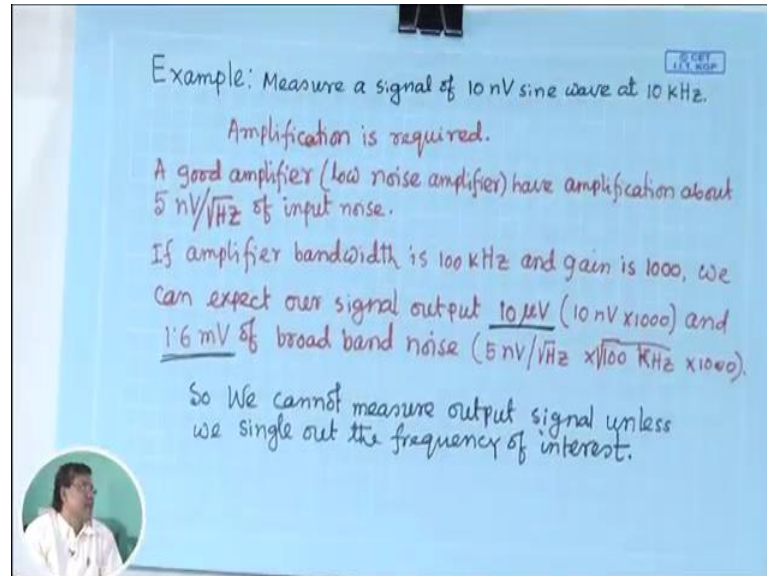 © CET
I.I.T. KGP
Example: Measure a signal of 10 nV sine wave at 10 KHz.
Amplification is required.
A good amplifier (low noise amplifier) have amplification about
5 nV/√Hz of input noise.
If amplifier bandwidth is 100 KHz and gain is 1000, we
can expect our signal output 10 μV (10 nV x1000) and
1.6 mV of broad band noise (5 nV/√Hz x√100 KHz x1000).
So We cannot measure output signal unless
we single out the frequency of interest.